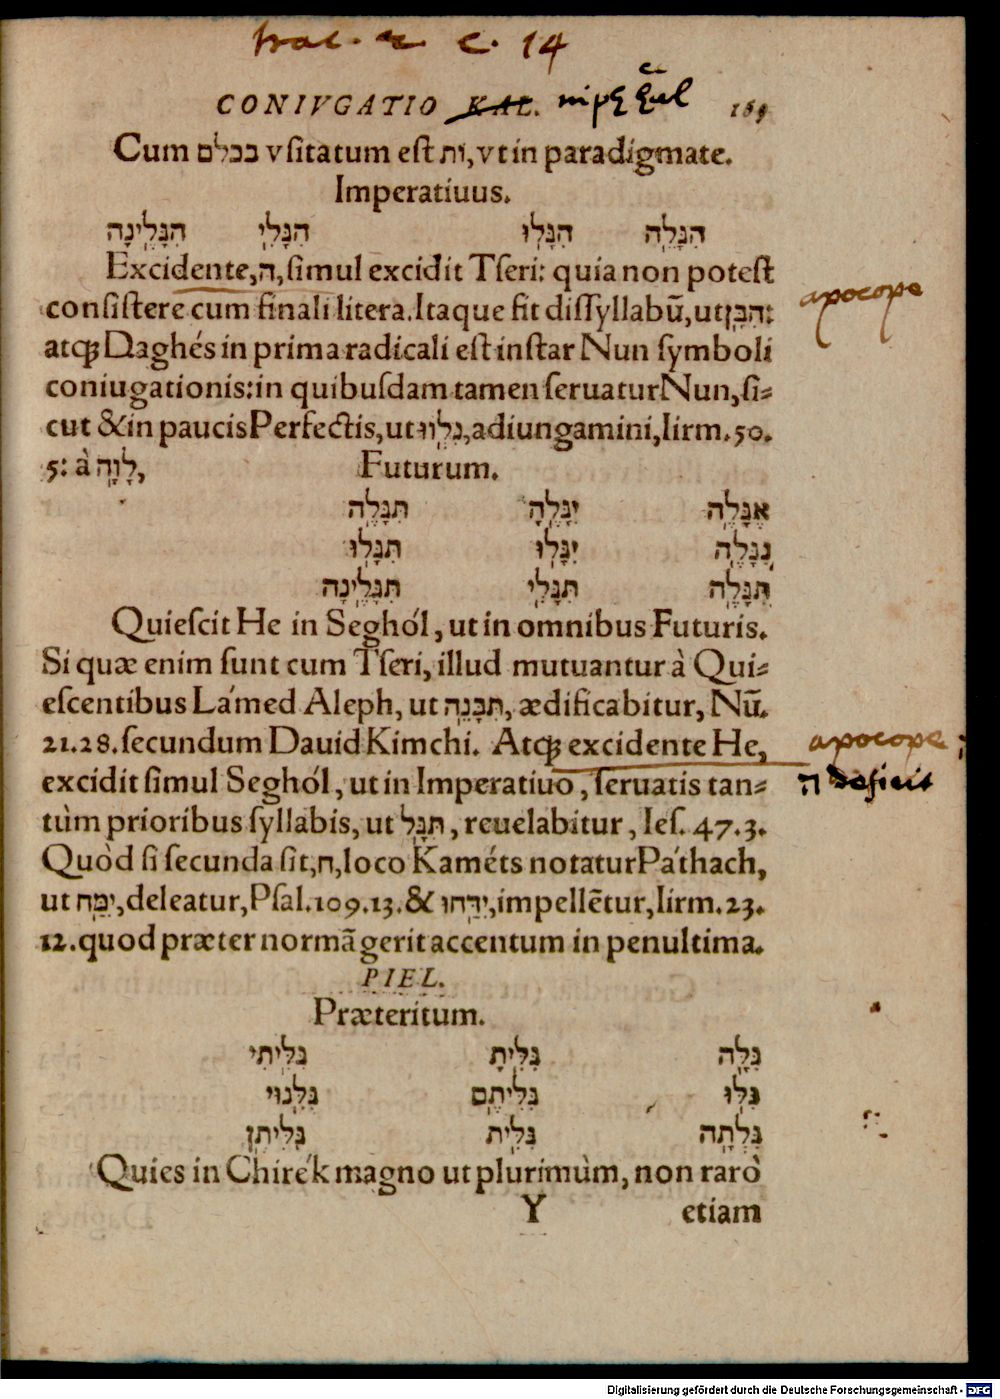 trac. 2 c. 14
CONIVGATIO KAL. niph 169
Cum בכלם vſitatum eſt וֹת, vt in paradigmate.
Imperatiuus.
הִגָּלֵה הִגָּלוּ הִגָּלִי הִגָּלֶינָה
Excidente, ה, ſimul excidit Tſeri: quia non poteſt
conſiſtere cum finali litera. Itaque fit diſſyllabū, ut הִבָּן:
atq; Daghés in prima radicali eſt inſtar Nun ſymboli
coniugationis: in quibuſdam tamen ſeruatur Nun, ſi⸗
cut & in paucis Perfectis, ut נִלְווּ, adiungamini, Iirm. 50.
5: à לָוָה,
Futurum.
אֶגָּלֶה יִגָּלֶה תִּגָּלֶה
נִגָּלֶה יִגָּלוּ תִּגָּלוּ
תִּגָּלֶה תִּגָּלִי תִּגָּלֶינָה
Quieſcit He in Seghól, ut in omnibus Futuris.
Si quæ enim ſunt cum Tſeri, illud mutuantur à Qui⸗
eſcentibus Lámed Aleph, ut תִּבָּנֵה, ædificabitur, Nū.
21.28. ſecundum Dauid Kimchi. Atq; excidente He,
excidit ſimul Seghól, ut in Imperatiuo, ſeruatis tan⸗
tùm prioribus ſyllabis, ut תִּגָּל, reuelabitur, Ieſ. 47.3.
Quòd ſi ſecunda ſit, ח, loco Kaméts notatur Páthach,
ut יִמַּח, deleatur, Pſal. 109.13. & יִדַּחוּ, impellētur, Iirm. 23.
12. quod præter normā gerit accentum in penultima.
PIEL.
Præteritum.
גִּלָּה גִּלִּיתָ גִּלִּיתִי
גִּלּוּ גִּלִּיתֶם גִּלִּנוּי
גִּלְּתָה גִּלִּית גִּלִּיתֶן
Quies in Chirék magno ut plurimùm, non rarò
Y etiam
apocope
apocope
ה deficit
Digitalisierung gefördert durch die Deutsche Forschungsgemeinschaft - DFG